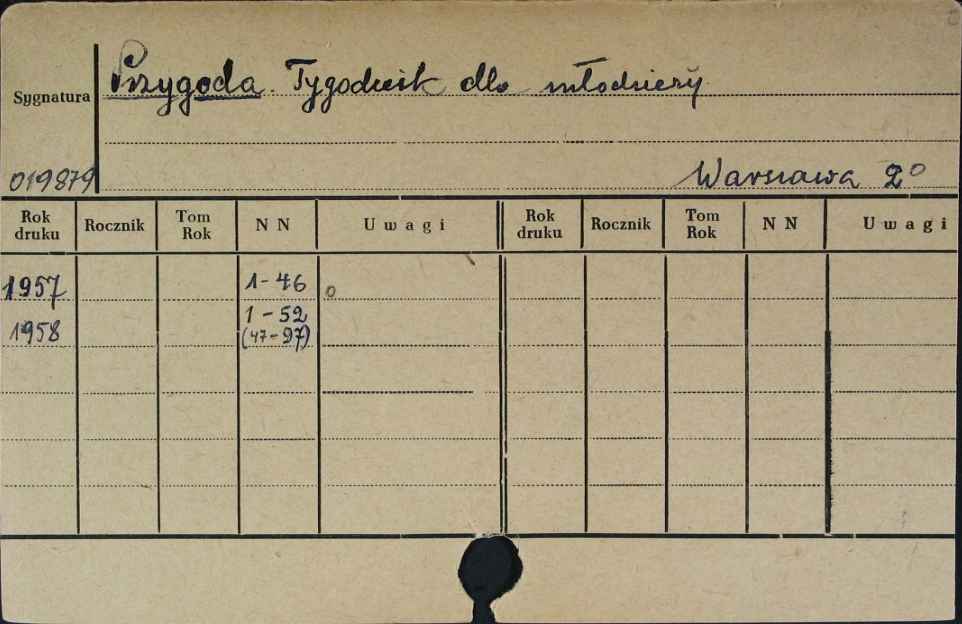 Przygoda. Tygodnik dla młodzieży
Sygnatura
019879
Warszawa 2°
Rok druku Rocznik Tom Rok N N Uwagi Rok druku Rocznik Tom Rok N N Uwagi
1957 1-46
1958 1-52
(47-97)